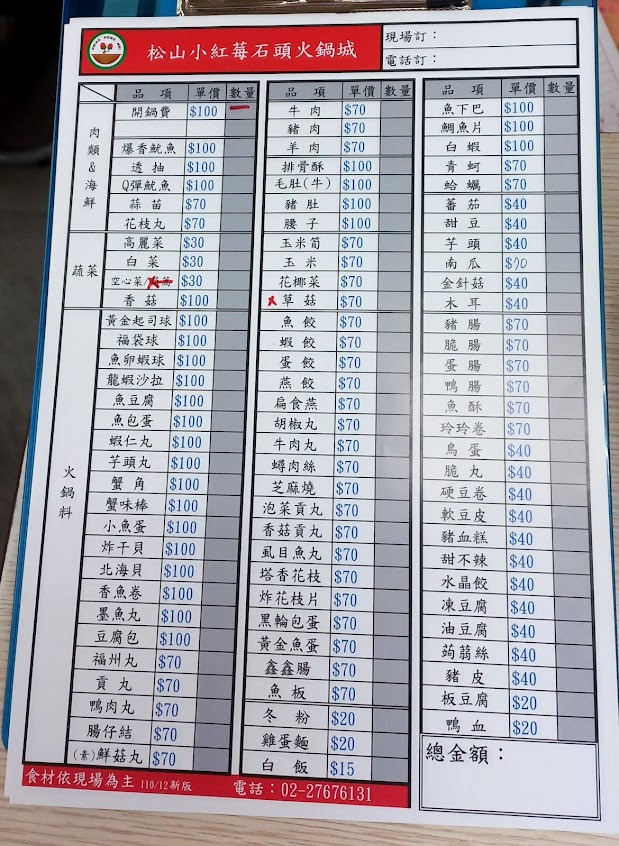 松山小紅莓石頭火鍋城
現場訂：
電話訂：
品項 單價 數量
肉類&海鮮
開鍋費 $100
爆香魷魚 $100
透抽 $100
Q彈魷魚 $100
蒜苗 $70
花枝丸 $70
蔬菜
高麗菜 $30
白菜 $30
空心菜/ $30
香菇 $100
火鍋料
黃金起司球 $100
福袋球 $100
魚卵蝦球 $100
龍蝦沙拉 $100
魚豆腐 $100
魚包蛋 $100
蝦仁丸 $100
芋頭丸 $100
蟹角 $100
蟹味棒 $100
小魚蛋 $100
炸干貝 $100
北海貝 $100
香魚卷 $100
墨魚丸 $100
豆腐包 $100
福州丸 $70
貢丸 $70
鴨肉丸 $70
腸仔結 $70
(素)鮮菇丸 $70
品項 單價 數量
牛肉 $70
豬肉 $70
羊肉 $70
排骨酥 $100
毛肚(牛) $100
豬肚 $100
腰子 $100
玉米筍 $70
玉米 $70
花椰菜 $70
草菇 $70
魚餃 $70
蝦餃 $70
蛋餃 $70
燕餃 $70
扁食燕 $70
胡椒丸 $70
牛肉丸 $70
蟳肉絲 $70
芝麻燒 $70
泡菜貢丸 $70
香菇貢丸 $70
虱目魚丸 $70
塔香花枝 $70
炸花枝片 $70
黑輪包蛋 $70
黃金魚蛋 $70
鑫鑫腸 $70
魚板 $70
冬粉 $20
雞蛋麵 $20
白飯 $15
品項 單價 數量
魚下巴 $100
鯛魚片 $100
白蝦 $100
青蚵 $70
蛤蠣 $70
蕃茄 $40
甜豆 $40
芋頭 $40
南瓜 $70
金針菇 $40
木耳 $40
豬腸 $70
脆腸 $70
蛋腸 $70
鴨腸 $70
魚酥 $70
玲玲卷 $70
鳥蛋 $40
脆丸 $40
硬豆卷 $40
軟豆皮 $40
豬血糕 $40
甜不辣 $40
水晶餃 $40
凍豆腐 $40
油豆腐 $40
蒟蒻絲 $40
豬皮 $40
板豆腐 $20
鴨血 $20
總金額：
食材依現場為主 110/12新版 電話：02-27676131